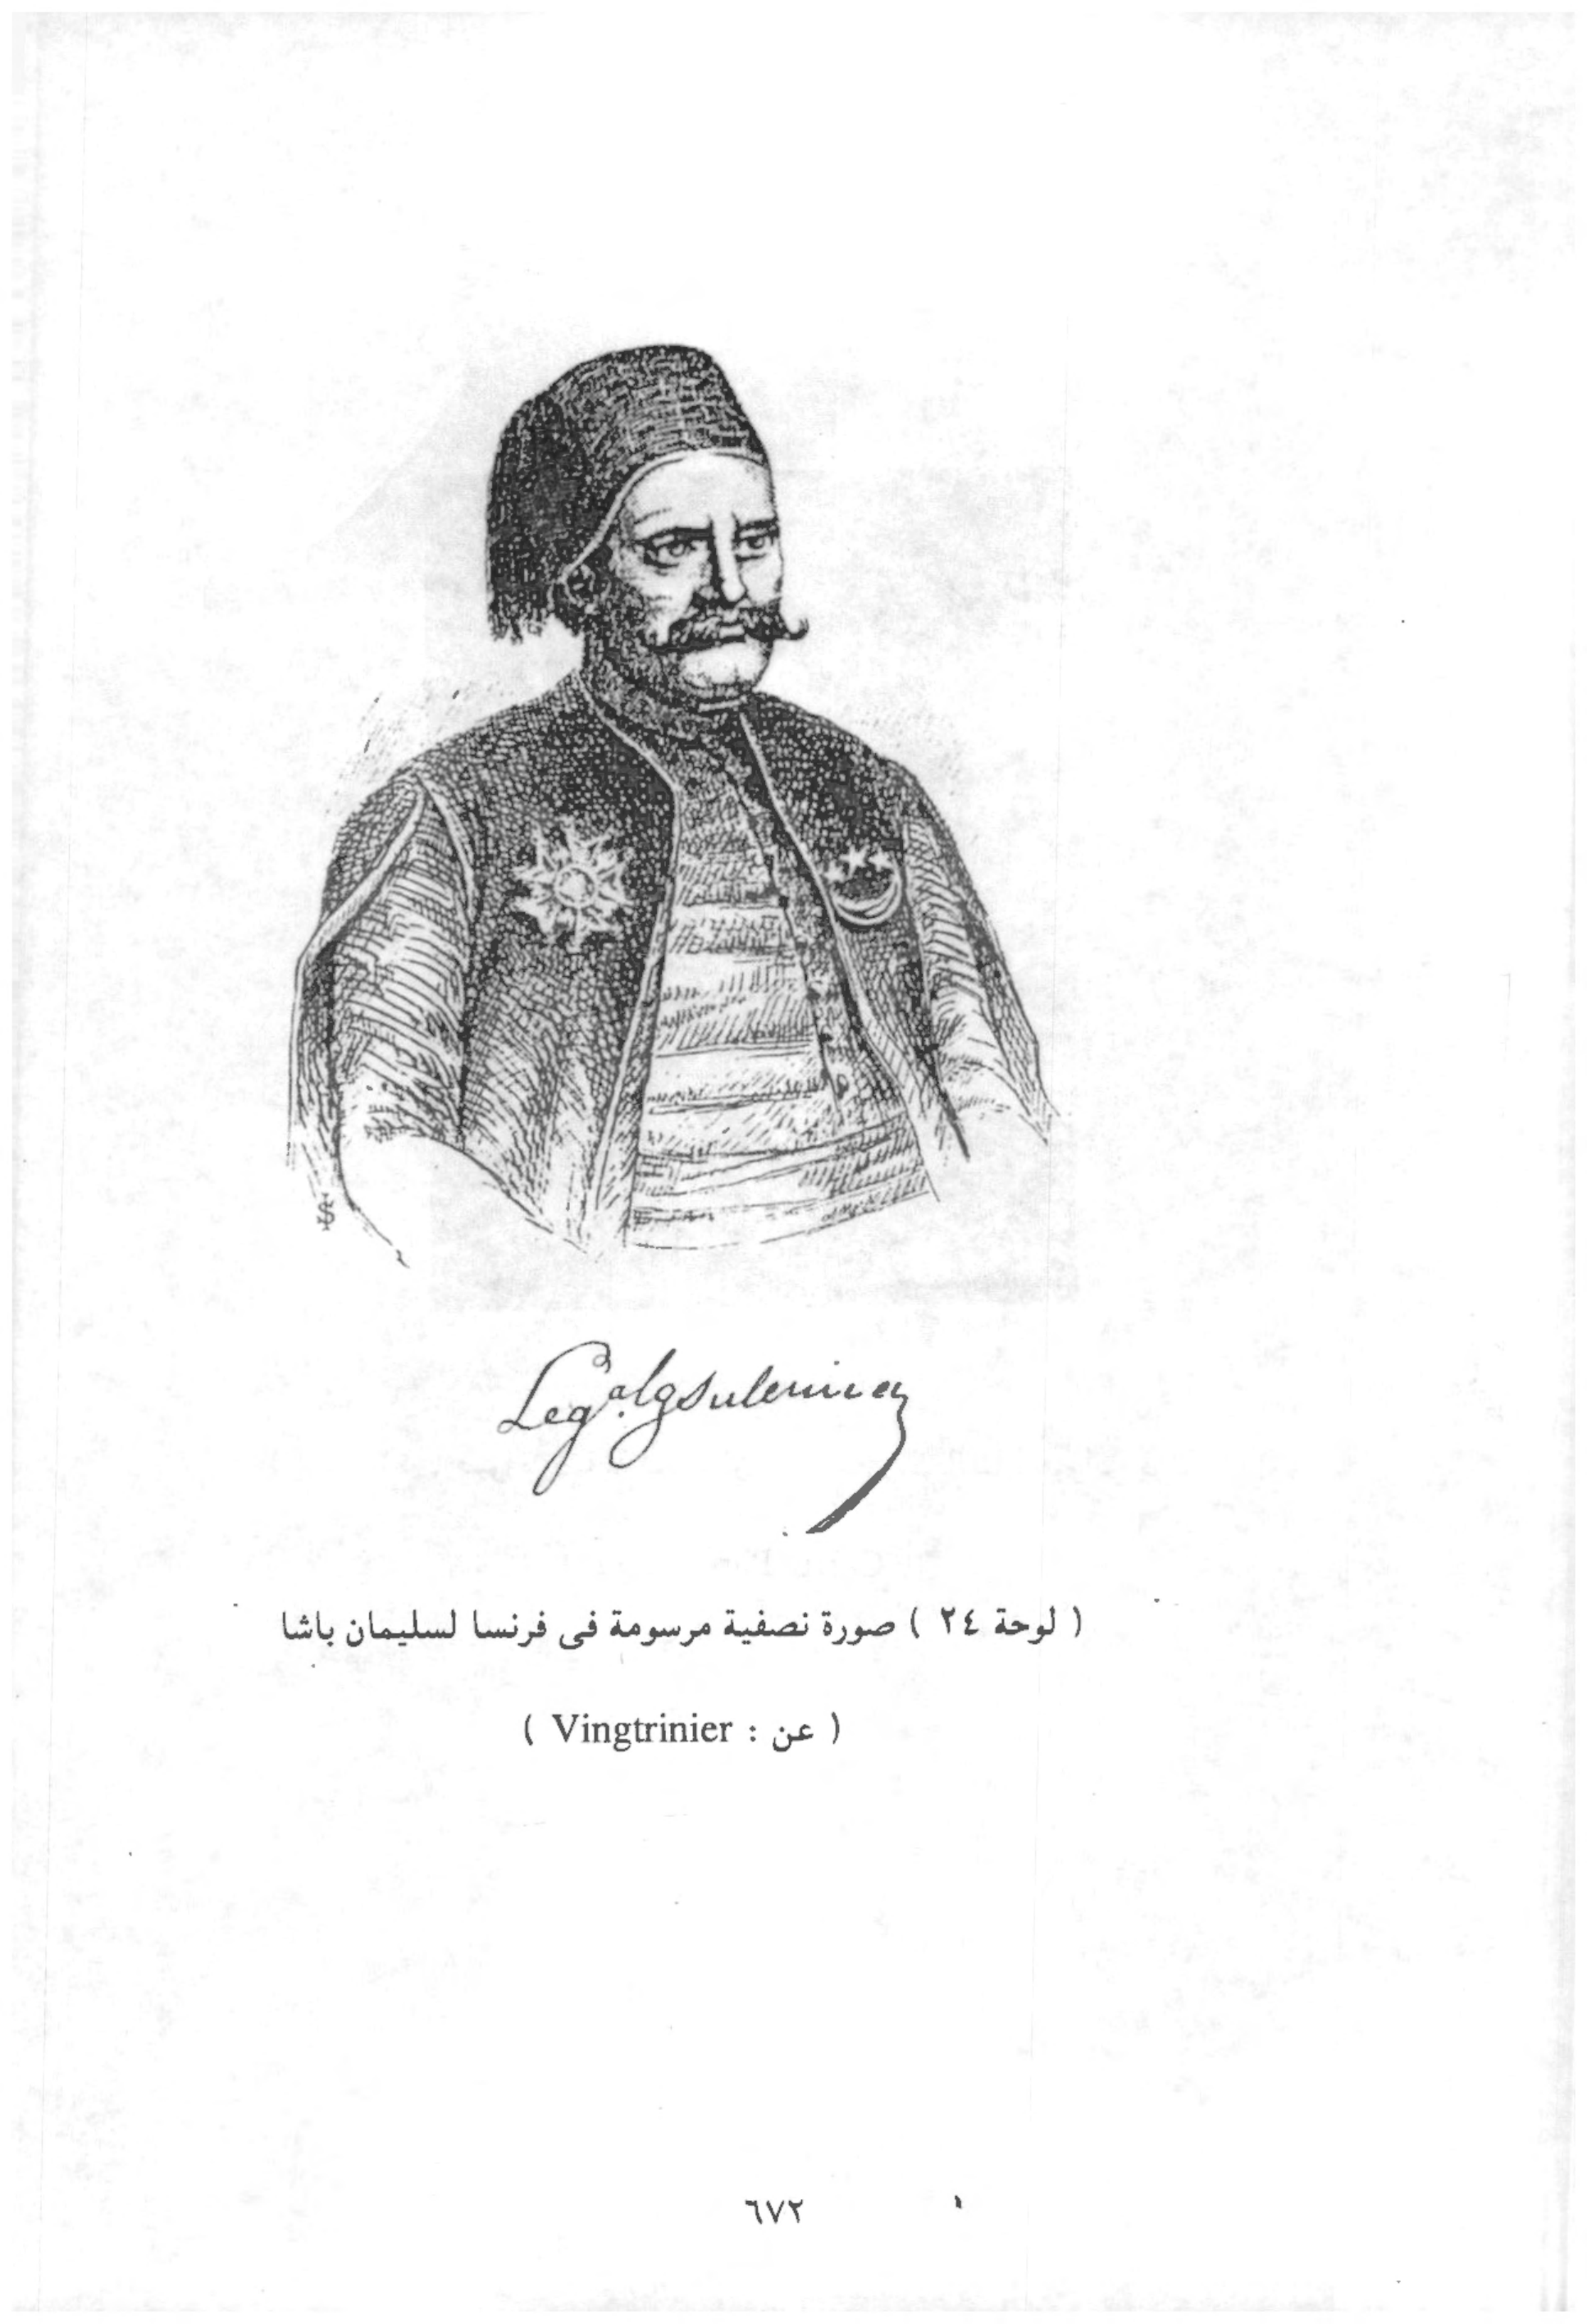 Le gal Suleiman
( لوحة ٢٤ ) صورة نصفية مرسومة فى فرنسا لسليمان باشا
( عن : Vingtrinier )
٦٧٢